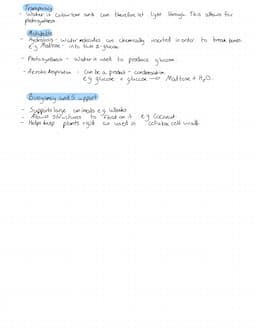 Transparency
- Water is colourless and can therefore let light through. This allows for
photosynthesis
Metabolite
- Hydrolysis - Water molecules are chemically inserted in order to break bonds
e.g Maltose into two α-glucose.
- Photosynthesis - Water is used to produce glucose.
- Aerobic Respiration : Can be a product - condensation
e.g glucose + glucose → Maltose + H₂O.
Buoyancy and Support
- Supports large animals e.g Whales
- Allows structures to float on it e.g Coconut
- Helps keep plants rigid as used in cellulose cell wall.